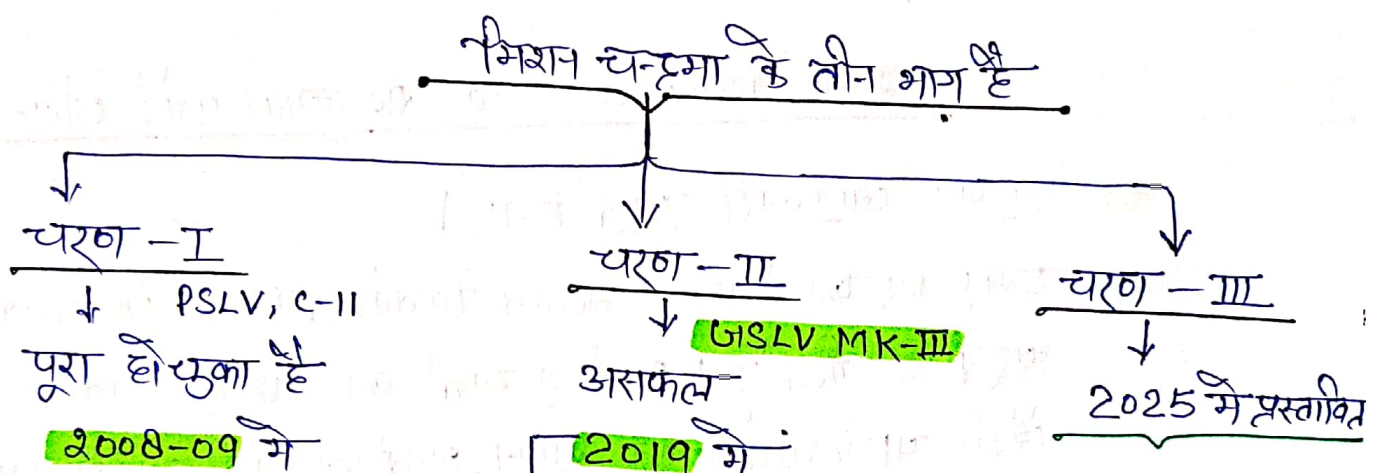 मिशन चन्द्रमा के तीन भाग है
चरण - I
PSLV, C-11
पूरा हो चुका है
2008-09 मे
चरण - II
GSLV MK-III
असफल
2019 मे
चरण - III
2025 मे प्रस्तावित